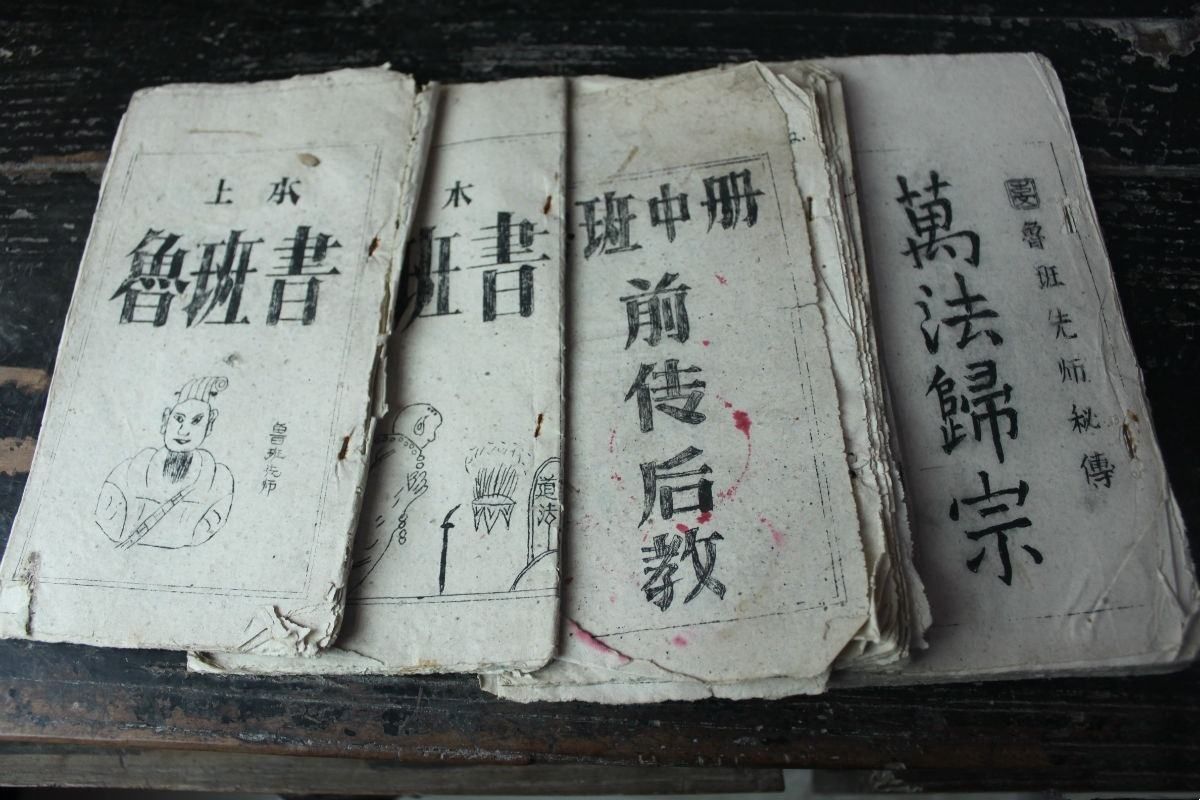 上 水
魯班書
魯班先师
木
班書
道法
班中册
前传后教
魯班先师秘傳
萬法歸宗